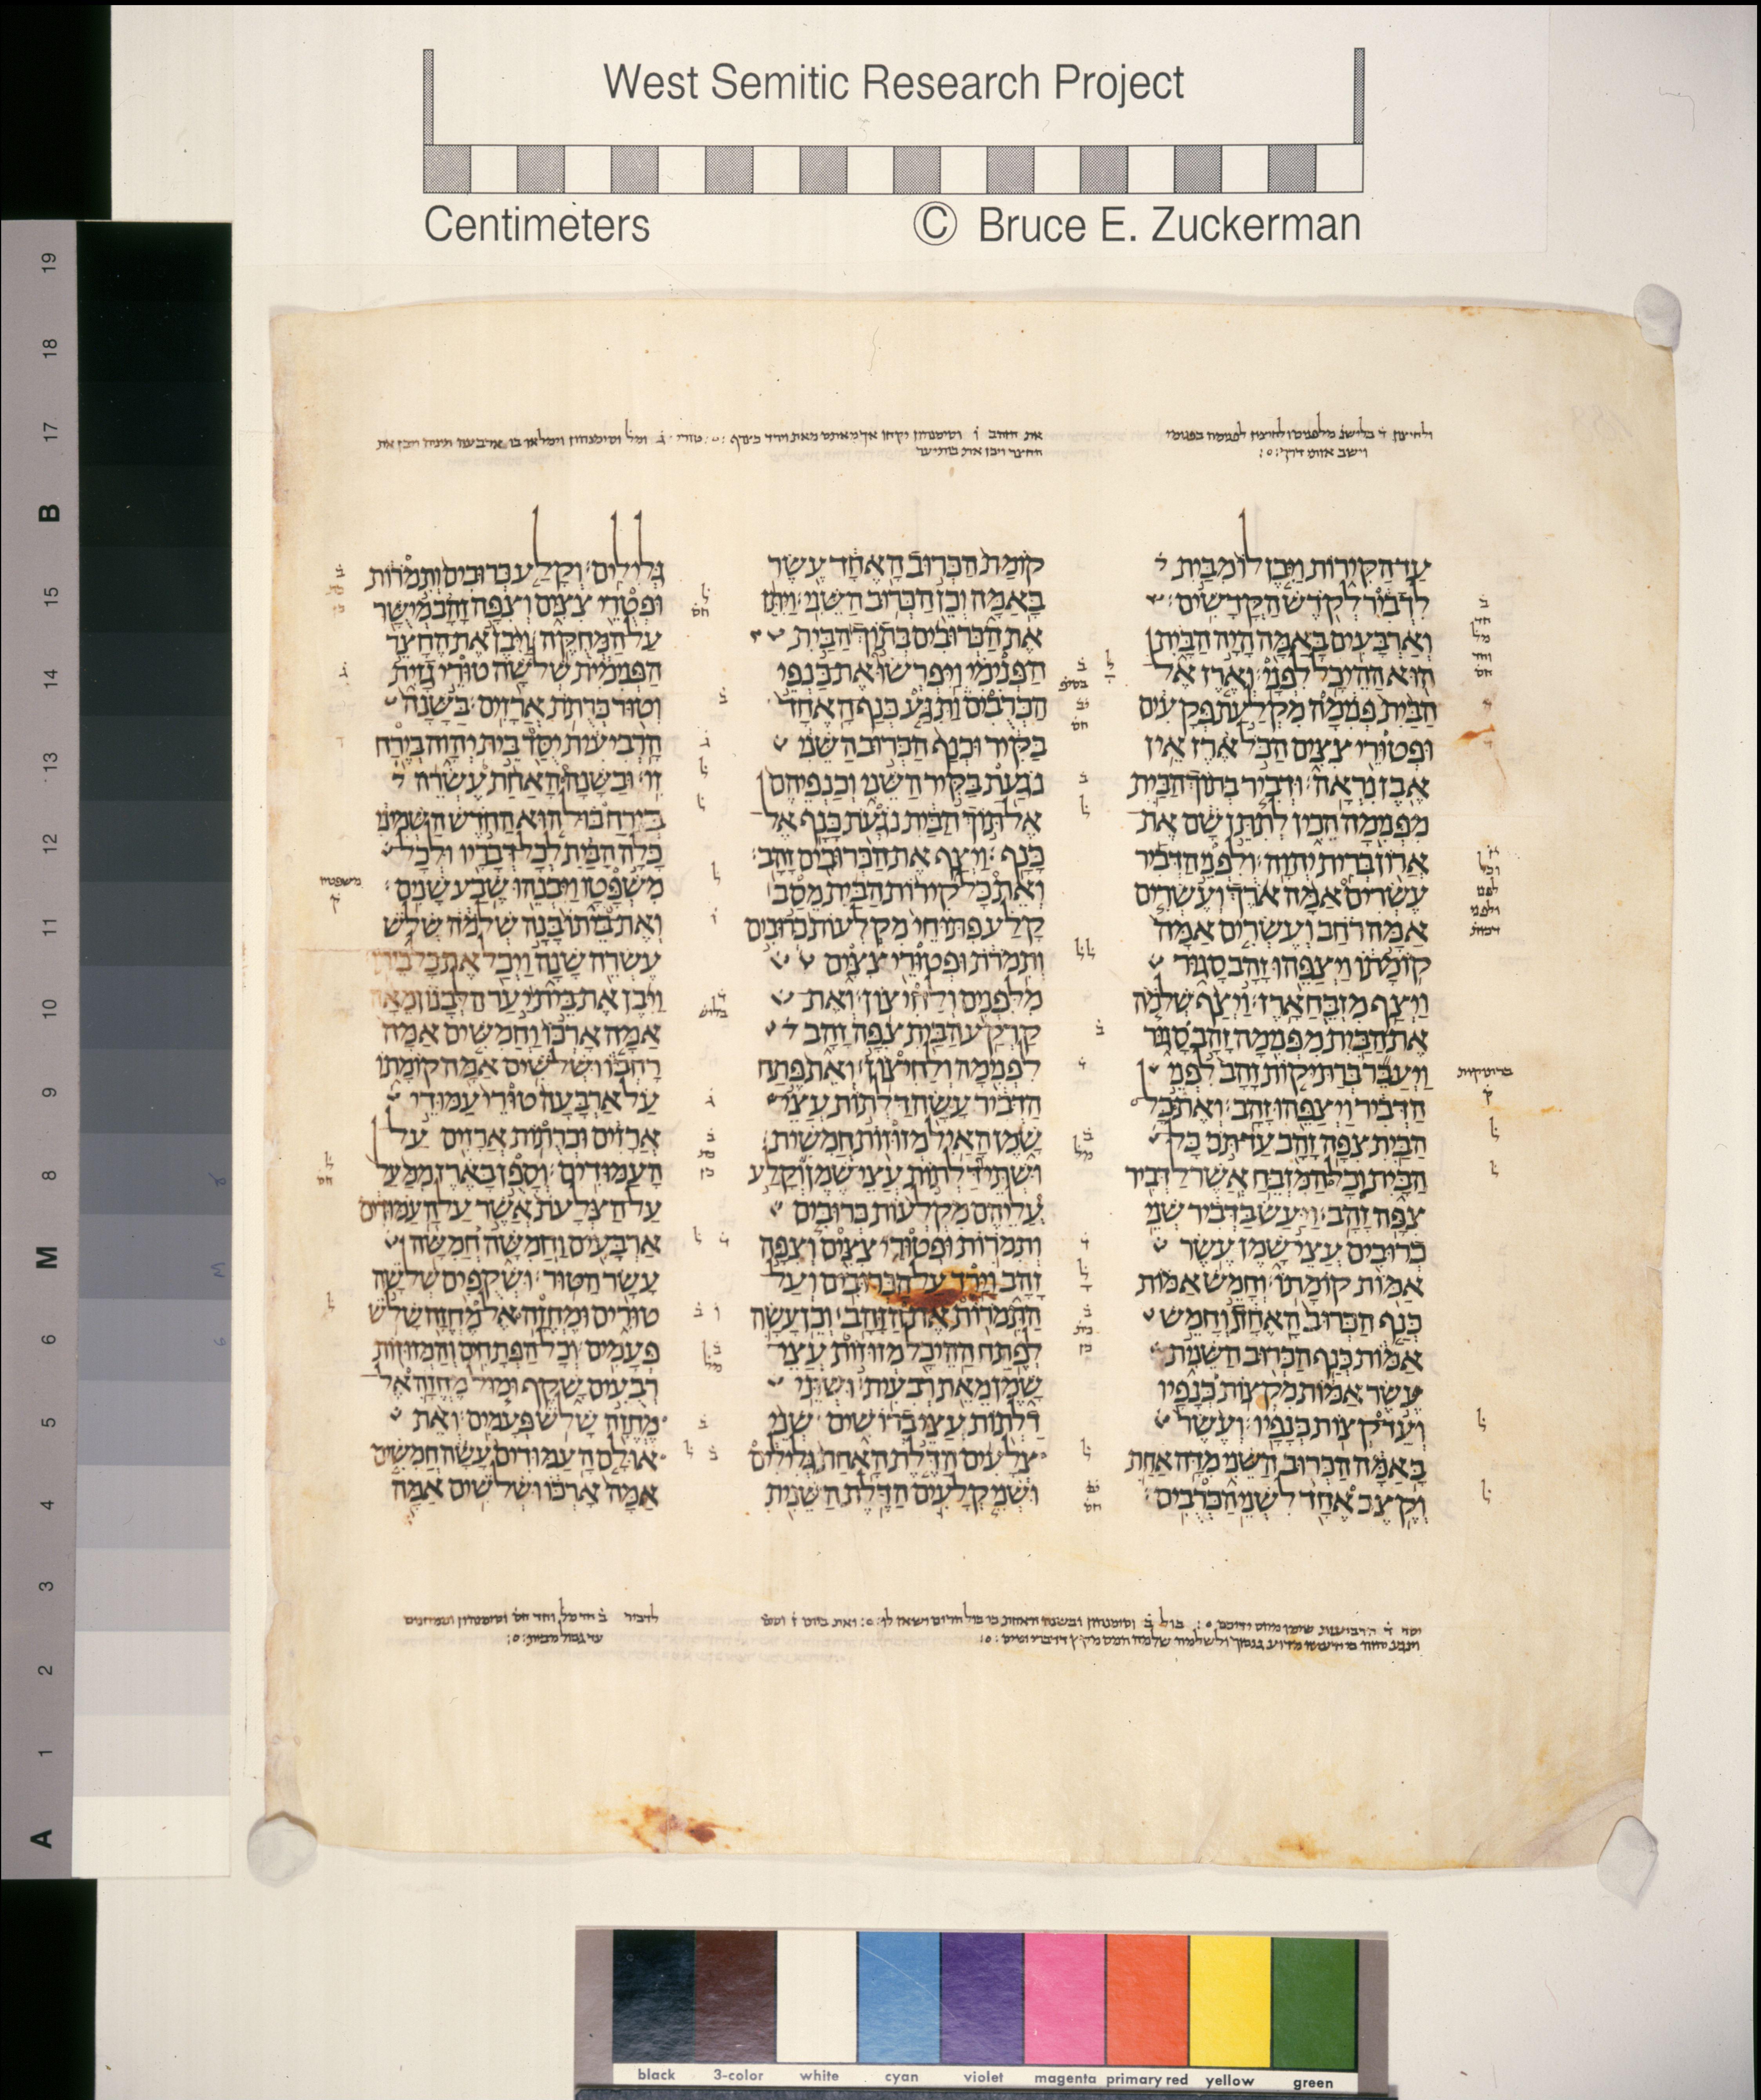 West Semitic Research Project
Centimeters © Bruce E. Zuckerman
עד הקירות ויבן לו מבית
לדביר לקדש הקדשים׃
וארבעים באמה היה הבית
הוא ההיכל לפני׃ וארז אל
הבית פנימה מקלעת פקעים
ופטורי צצים הכל ארז אין
אבן נראה׃ ודביר בתוך הבית
מפנימה הכין לתתן שם את
ארון ברית יהוה׃ ולפני הדביר
עשרים אמה ארך ועשרים
אמה רחב ועשרים אמה
קומתו ויצפהו זהב סגור
ויצף מזבח ארז׃ ויצף שלמה
את הבית מפנימה זהב סגור
ויעבר ברתיקות זהב לפני
הדביר ויצפהו זהב׃ ואת כל
הבית צפה זהב עד תם כל
הבית וכל המזבח אשר לדביר
צפה זהב׃ ויעש בדביר שני
כרובים עצי שמן עשר
אמות קומתו׃ וחמש אמות
כנף הכרוב האחת וחמש
אמות כנף הכרוב השנית
עשר אמות מקצות כנפיו
ועד קצות כנפיו׃ ועשר
באמה הכרוב השני מדה אחת
וקצב אחד לשני הכרבים׃
קומת הכרוב האחד עשר
באמה וכן הכרוב השני׃ ויתן
את הכרובים בתוך הבית
הפנימי ויפרשו את כנפי
הכרבים ותגע כנף האחד
בקיר וכנף הכרוב השני
נגעת בקיר השני וכנפיהם
אל תוך הבית נגעת כנף אל
כנף׃ ויצף את הכרובים זהב׃
ואת כל קירות הבית מסב
קלע פתוחי מקלעות כרובים
ותמרת ופטורי צצים
מלפנים ולחיצון׃ ואת
קרקע הבית צפה זהב
לפנימה ולחיצון׃ ואת פתח
הדביר עשה דלתות עצי
שמן האיל מזוזות חמשית׃
ושתי דלתות עצי שמן וקלע
עליהם מקלעות כרובים
ותמרות ופטורי צצים וצפה
זהב וירד על הכרובים ועל
התמרות את הזהב׃ וכן עשה
לפתח ההיכל מזוזות עצי
שמן מאת רבעית׃ ושתי
דלתות עצי ברושים שני
צלעים הדלת האחת גלילים
ושני קלעים הדלת השנית
גלילים׃ וקלע כרובים ותמרות
ופטרי צצים וצפה זהב מישר
על המחקה׃ ויבן את החצר
הפנימית שלשה טורי גזית
וטור כרתת ארזים׃ בשנה
הרביעית יסד בית יהוה בירח
זו׃ ובשנה האחת עשרה
בירח בול הוא החדש השמיני
כלה הבית לכל דבריו ולכל
משפטו ויבנהו שבע שנים׃
ואת ביתו בנה שלמה שלש
עשרה שנה ויכל את כל ביתו׃
ויבן את בית יער הלבנון מאה
אמה ארכו וחמשים אמה
רחבו ושלשים אמה קומתו
על ארבעה טורי עמודי
ארזים וכרתות ארזים על
העמודים׃ וספן בארז ממעל
על הצלעת אשר על העמודים
ארבעים וחמשה חמשה
עשר הטור׃ ושקפים שלשה
טורים ומחזה אל מחזה שלש
פעמים׃ וכל הפתחים והמזוזות
רבעים שקף ומול מחזה אל
מחזה שלש פעמים׃ ואת
אולם העמודים עשה חמשים
אמה ארכו ושלשים אמה
black 3-color white cyan violet magenta primary red yellow green
19
18
17
B
16
15
14
13
12
11
10
9
8
M
6
5
4
3
2
1
A